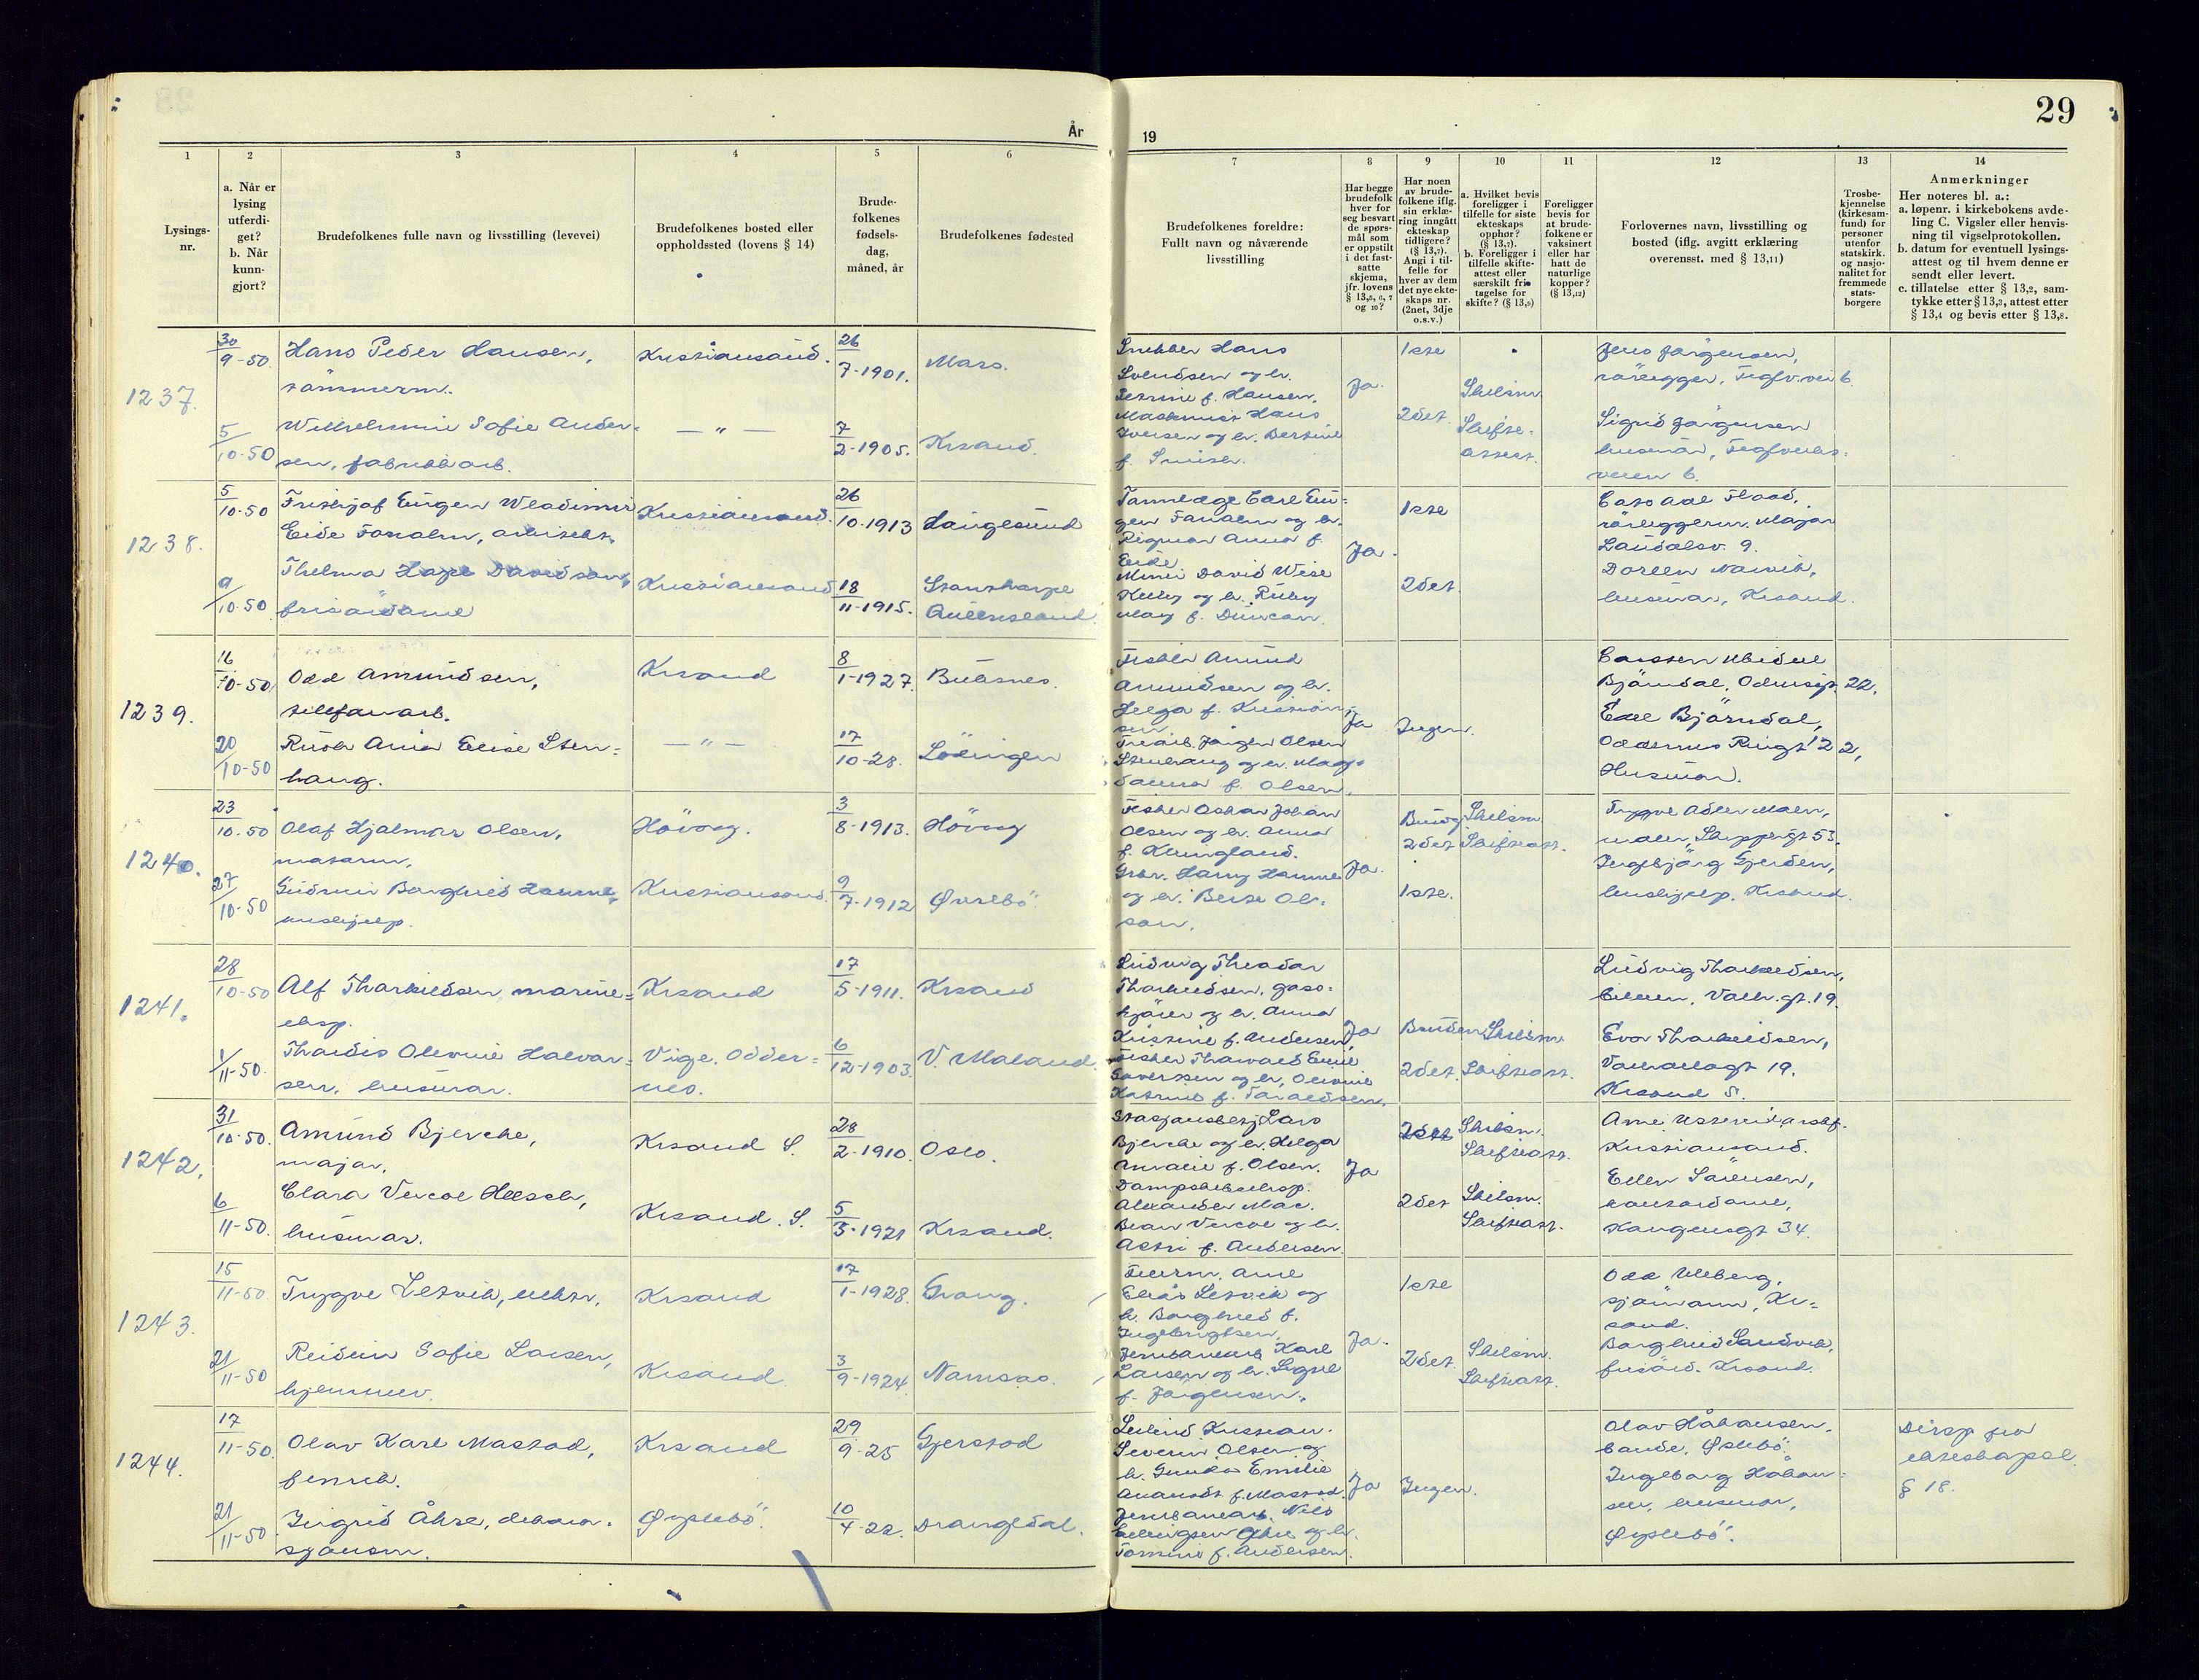 29
År
19
1
2
3
4
5
6
7
8
9
10
11
12
13
14
Lysings-
nr.
a. Når er
lysing
utferdi-
get?
b. Når
kunn-
gjort?
Brudefolkenes fulle navn og livsstilling (levevei)
Brudefolkenes bosted eller
oppholdssted (lovens § 14)
Brude-
folkenes
fødsels-
dag,
måned, år
Brudefolkenes fødested
Brudefolkenes foreldre:
Fullt navn og nåværende
livsstilling
Har begge
brudefolk
hver for
seg besvart
de spørs-
mål som
er oppstilt
i det fast-
satte
skjema,
jfr. lovens
§ 13,5, 6, 7
og 10?
Har noen
av brude-
folkene iflg.
sin erklæ-
ring inngått
ekteskap
tidligere?
(§ 13,7).
Angi i til-
felle for
hver av dem
det nye ekte-
skaps nr.
(2net, 3dje
o.s.v.)
a. Hvilket bevis
foreligger i
tilfelle for siste
ekteskaps
opphør?
(§ 13,7).
b. Foreligger i
tilfelle skifte-
attest eller
særskilt fri-
tagelse for
skifte? (§ 13,9)
Foreligger
bevis for
at brude-
folkene er
vaksinert
eller har
hatt de
naturlige
kopper?
(§ 13,12)
Forlovernes navn, livsstilling og
bosted (iflg. avgitt erklæring
overensst. med § 13,11)
Trosbe-
kjennelse
(kirkesam-
fund) for
personer
utenfor
statskirk.
og nasjo-
nalitet for
fremmede
stats-
borgere
Anmerkninger
Her noteres bl. a.:
a. løpenr. i kirkebokens avde-
ling C. Vigsler eller henvis-
ning til vigselprotokollen.
b. datum for eventuell lysings-
attest og til hvem denne er
sendt eller levert.
c. tillatelse etter § 13,2, sam-
tykke etter § 13,3, attest etter
§ 13,4 og bevis etter § 13,8.
1237.
30/9-50
Hans Peder Hansen,
tömmerm.
Kristiansand.
26/7-1901.
Snekker Hans
Svendsen og h.
f. Hansen.
Ja.
1ste
Jens Jörgensen,
rörlegger,
5/10-50
Wilhelmine Sofie Ander-
sen, fabrikkarb.
— " —
7/2-1905.
Krsand.
Maskinist Hans
Iversen og h.
2det
Skilsm.
Skifte-
attest.
Sigrid Jörgensen
husmor,
1238.
5/10-50
Fritshjof Eugen Wladimir
Eide Fanalm,
Kristiansand.
26/10-1913
Langesund
Tannlege Carl Eu-
gen Fanalm og h.
Anna f.
Eide
Ja.
1ste
rörleggerm. Major
Laudalsv. 9.
9/10-50
Thelma Davidson,
frisördame
Kristiansand
18/11-1915.
Stansharpe
Queensland.
David Wise
og h. Ruby
May f. Duncan.
2det
Doreen Narvik,
husmor, Krsand.
1239.
16/10-50
Odd Amundsen,
telefonarb.
Krsand
8/1-1927.
Buksnes.
Fisker Amund
Amundsen og h.
Helga f. Kristian-
sen
Ja
Ingen.
Carsten Mikael
Björndal, 22,
20/10-50
Ruth Anie Elise Sten-
haug.
— " —
17/10-28.
Lödingen
Jörgen Olsen
Stenhaug og h. Mag-
danna f. Olsen.
Edel Björndal,
Oddernes Ringt 22,
Husmor.
1240.
23/10-50
Olaf Hjalmar Olsen,
matorm.
Hövåg.
3/8-1913.
Hövåg
Fisker Oskar Johan
Olsen og h. Anna
f. Kleingland.
Ja.
Brudg
2det
Skilsm.
Skifteatt.
Trygve Adler Malm,
maler, Skippergt 53.
27/10-50
Gudrun Borghild Homme,
hushjelp.
Kristiansand.
9/7-1912
Øvrebö.
Grbr. Harry Homme
og h. Berte Ol-
son.
1ste.
Ingebjörg Gjerden,
hushjelp. Krsand.
1241.
28/10-50
Alf Thorkildsen, marine-
eksp.
Krsand
17/5-1911.
Krsand
Ludvig Theodor
Thorkildsen, gass-
kjörer og h. Anna
Kristine f. Andersen
Ja
Bruden
2det.
Skilsm.
Skifteatt.
Ludvig Thorkildsen,
19.
1/11-50.
Thordis Olevine Halvor-
sen, husmor.
Vige. Odder-
nes.
6/12-1903.
V. Moland.
Fisker Thorvald Emil
og h. Olevine
Katrine f. Taraldsen.
Eva Thorkildsen,
19.
Krsand S.
1242.
31/10-50.
Amund Bjerche,
major.
Krsand S.
28/2-1910.
Oslo.
Lars
Bjerche og h. Helga
Amalie f. Olsen.
Ja
2det
Skilsm.
Skifteatt.
Arne
Kristiansand.
6/11-50.
Clara Vercoe Heesch,
husmor.
Krsand. S.
5/3-1921
Krsand.
Dampskibseksp.
Alexander Mac.
Bean Vercoe og h.
Astri f. Andersen.
2det
Skilsm.
Skifteatt.
Ellen Sörensen,
kontordame,
Kongensgt 34.
1243.
15/11-50.
Trygve Letvik, elektr.
Krsand
17/1-1928.
Grong.
Arne
Elias Letvik og
h. Borghild f.
Ingebrigtsen.
Ja.
1ste
Odd Ueberg,
sjömann, Kr-
sand.
21/11-50
Reidun Sofie Larsen,
hjemmev.
Krsand
3/9-1924.
Namsos.
Karl
Larsen og h. Signe
f. Jörgensen.
2det
Skilsm.
Skifteatt.
Borghild Sandvik,
frisörd. Krsand.
1244.
17/11-50.
Olav Karl Mastad,
fenrik.
Krsand
29/9-25
Gjerstad
Kristian
Severin Olsen og
h. Gunda Emilie
f. Mastad.
Ja
Ingen.
Olav Håkonsen,
bonde, Øslebö.
Disp fra
ekteskapsl.
§ 18.
21/11-50
Ingrid Åhre, dekora-
sjonsm.
Øyslebö.
10/4-22.
Drangedal.
Jernbanearb. Nils
Ellingsen Åhre og h.
Tomine f. Andersen.
Ingeborg Håkon-
sen, husmor,
Øyslebö.